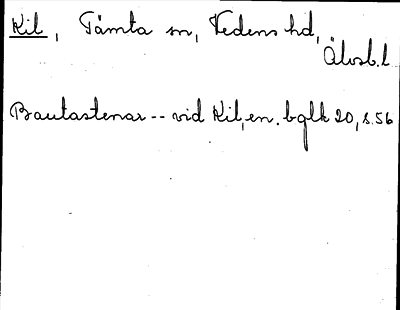 Kil, Tämta sn, Vedens hd,
Älvsb. l
Bautastenar -- vid Kil, en. bglk 20, s. 56